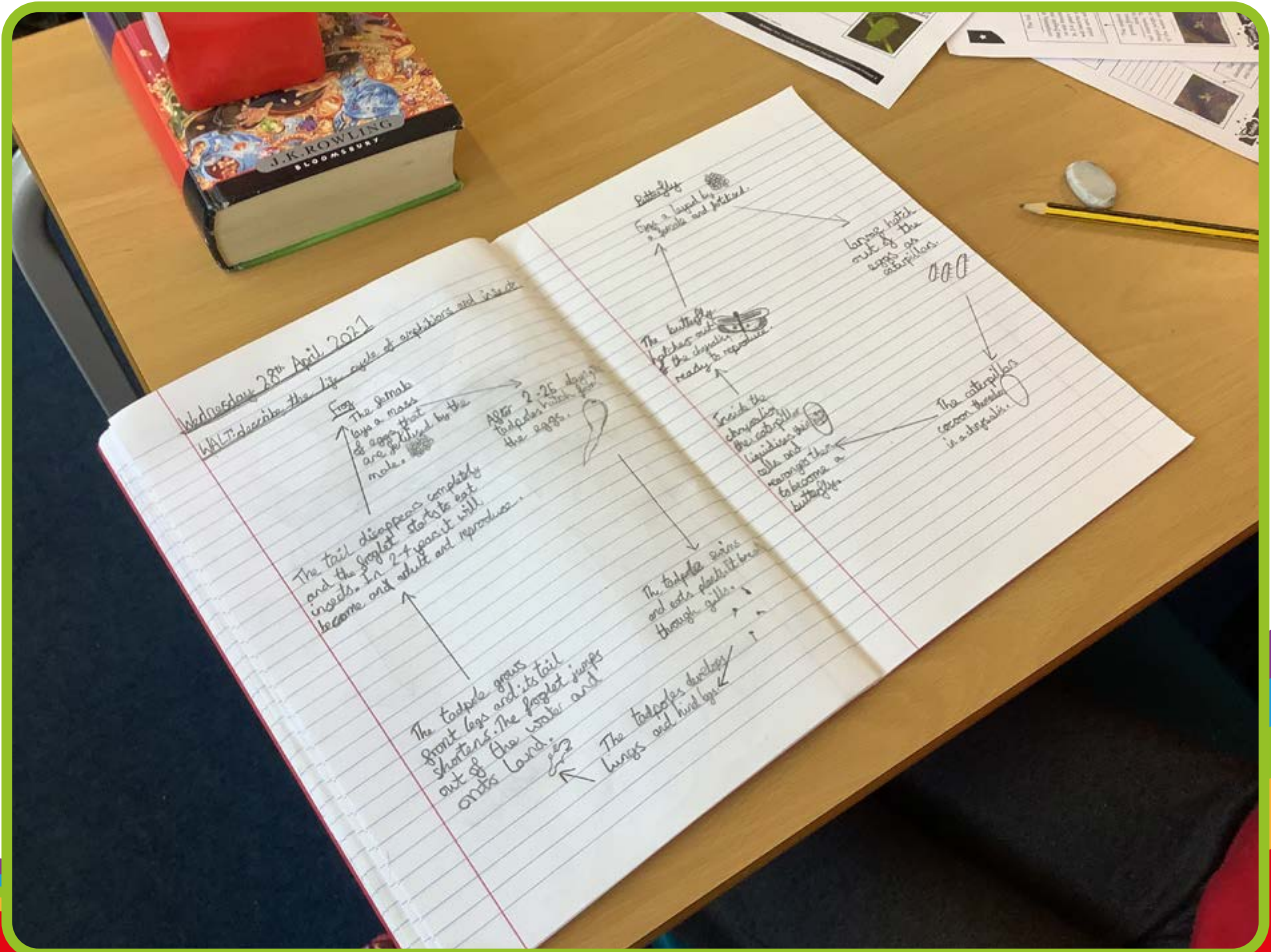 J.K.ROWLING
BLOOMSBURY
Wednesday 28th April 2021
WALT: describe the life cycle of and insects
Frog
The female
lays a mass
of eggs that
are fertilised by the
male.
After 2-25 days
tadpoles hatch
the eggs.
The tadpole swims
and eats plants. It
through gills.
The tadpoles develop
lungs and hind legs
The tadpole grows
front legs and its tail
shortens. The froglet jumps
out of the water and
onto land.
The tail disappears completely
and the froglet starts to eat
insects. In 2-4 years it will
become and adult and reproduce.
Butterfly
Eggs layed by
a female and
larvae hatch
out of the
eggs as
caterpillars.
The caterpillars
cocoon
in a chrysalis.
Inside the
the caterpillar
liquidises
cells and
to become a
butterfly.
The butterfly
hatches out
of the
ready to reproduce.